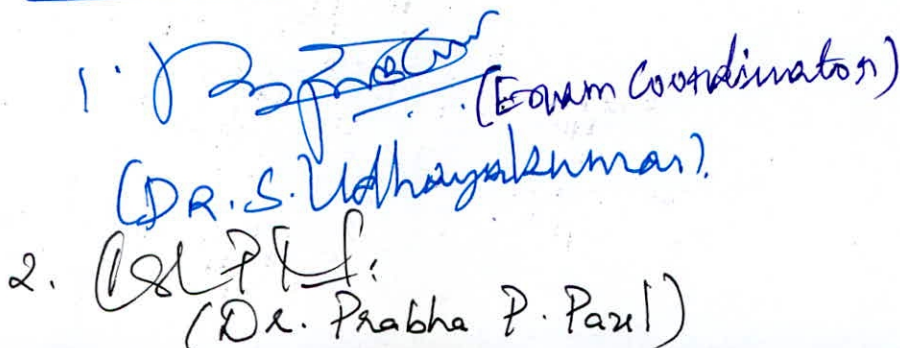 1. (Exam Coordinator)
(DR. S. Udhayakumar).
2.
(Dr. Prabha P. Patel)